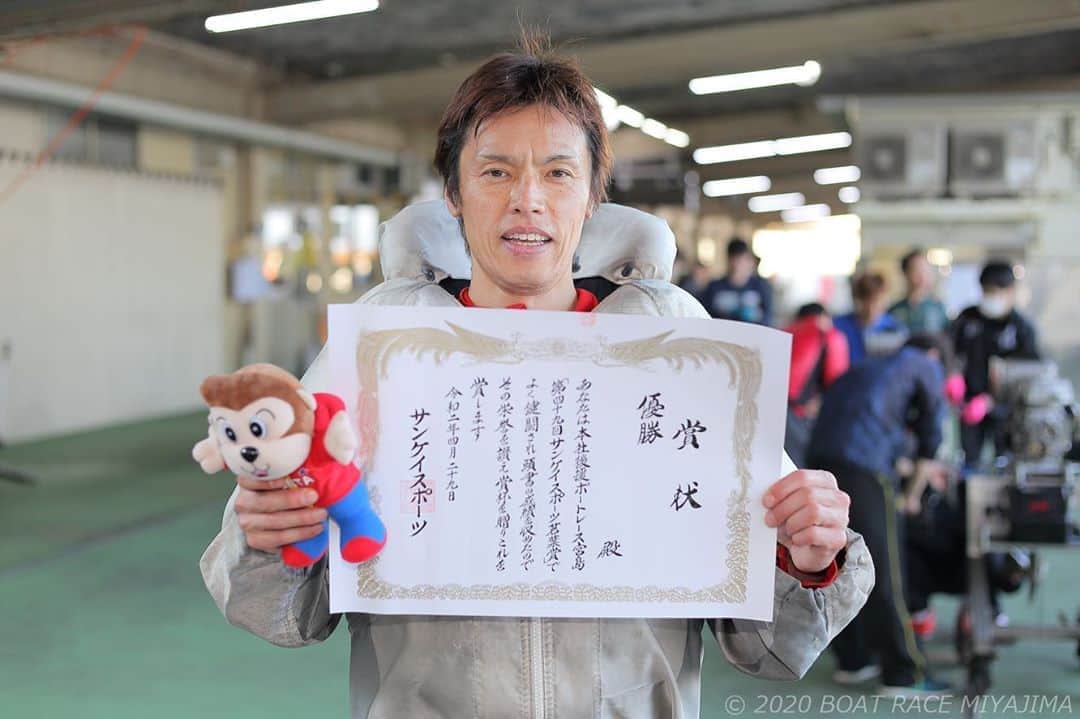 賞状
優勝
殿
あなたは本社後援ボートレース宮島
「第四十九回サンケイスポーツ若葉賞」で
よく健闘され頭書の成績を収めたので
その栄誉を讃え賞杯を贈りこれを
賞します
令和二年四月二十九日
サンケイスポーツ
© 2020 BOAT RACE MIYAJIMA